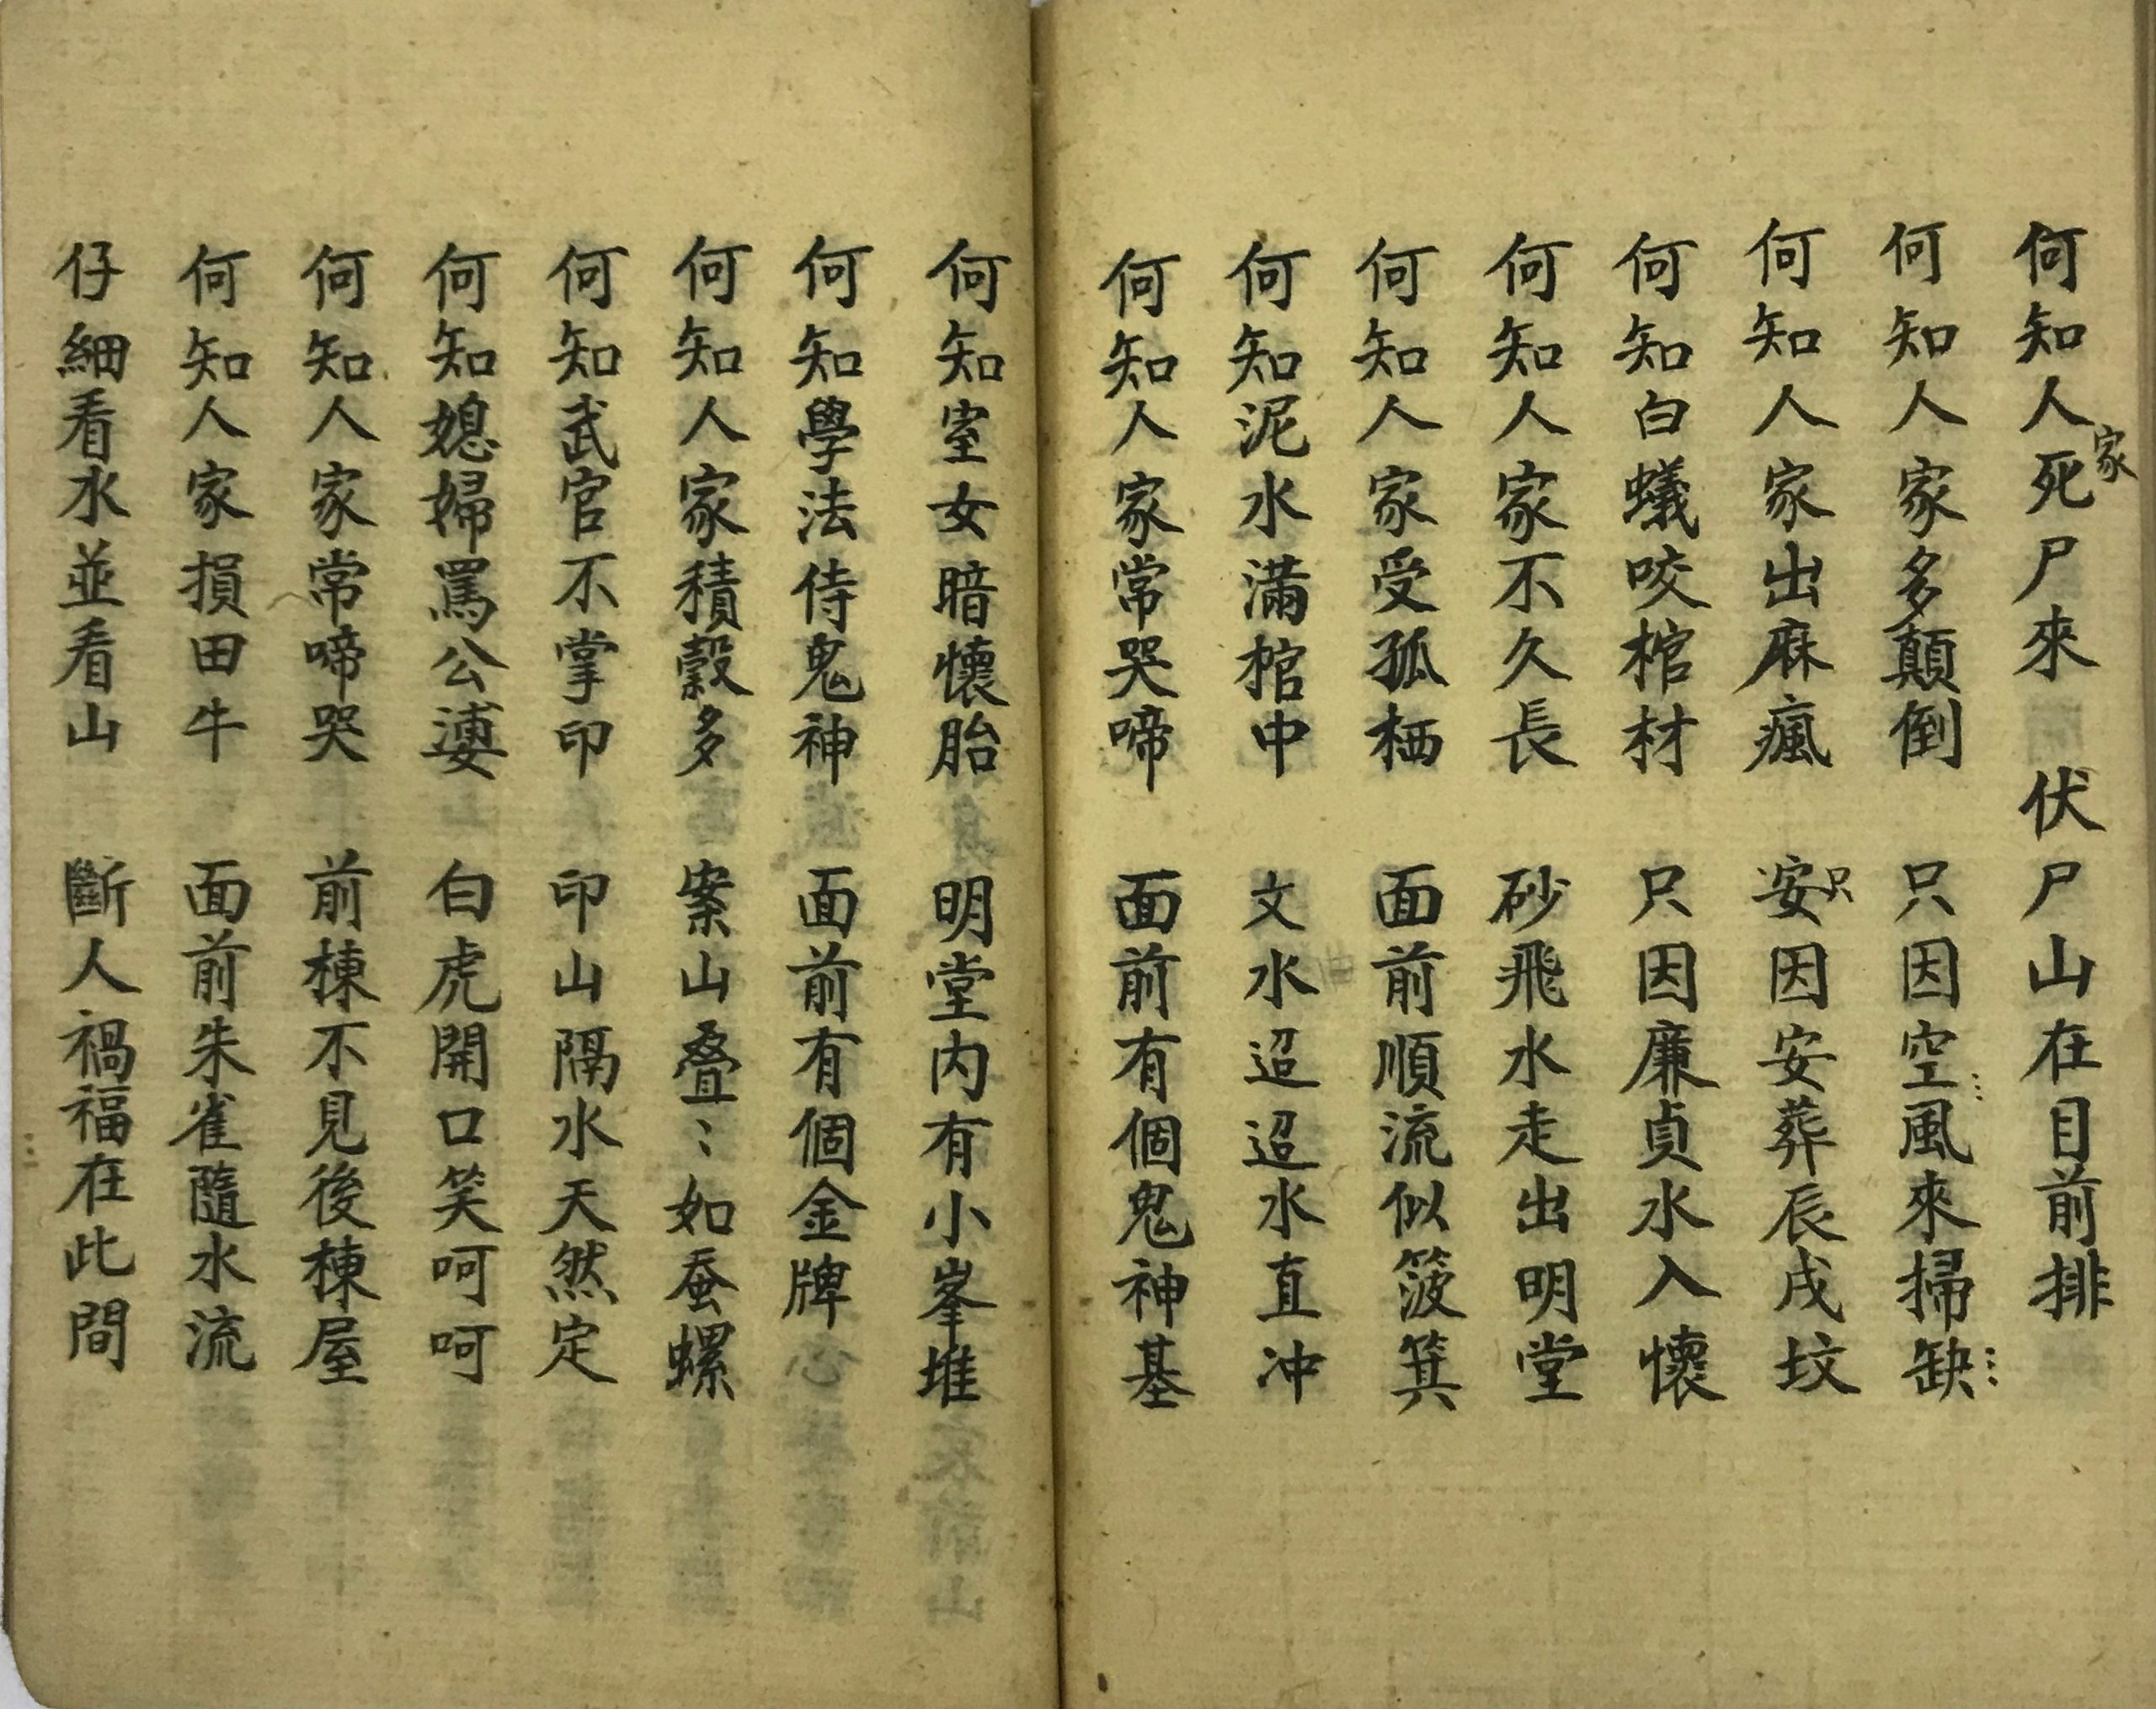 何知人家死尸來　伏尸山在目前排
何知人家多顛倒　只因空風來掃缺
何知人家出麻瘋　安只因安葬辰戌坟
何知白蟻咬棺材　只因廉貞水入懷
何知人家不久長　砂飛水走出明堂
何知人家受孤栖　面前順流似簸箕
何知泥水滿棺中　文水迢迢水直冲
何知人家常哭啼　面前有個鬼神基
何知室女暗懷胎　明堂内有小峯堆
何知學法侍鬼神　面前有個金牌
何知人家積穀多　案山叠〻如蚕螺
何知武官不掌印　印山隔水天然定
何知媳婦罵公婆　白虎開口笑呵呵
何知人家常啼哭　前棟不見後棟屋
何知人家損田牛　面前朱雀隨水流
仔細看水並看山　斷人禍福在此間